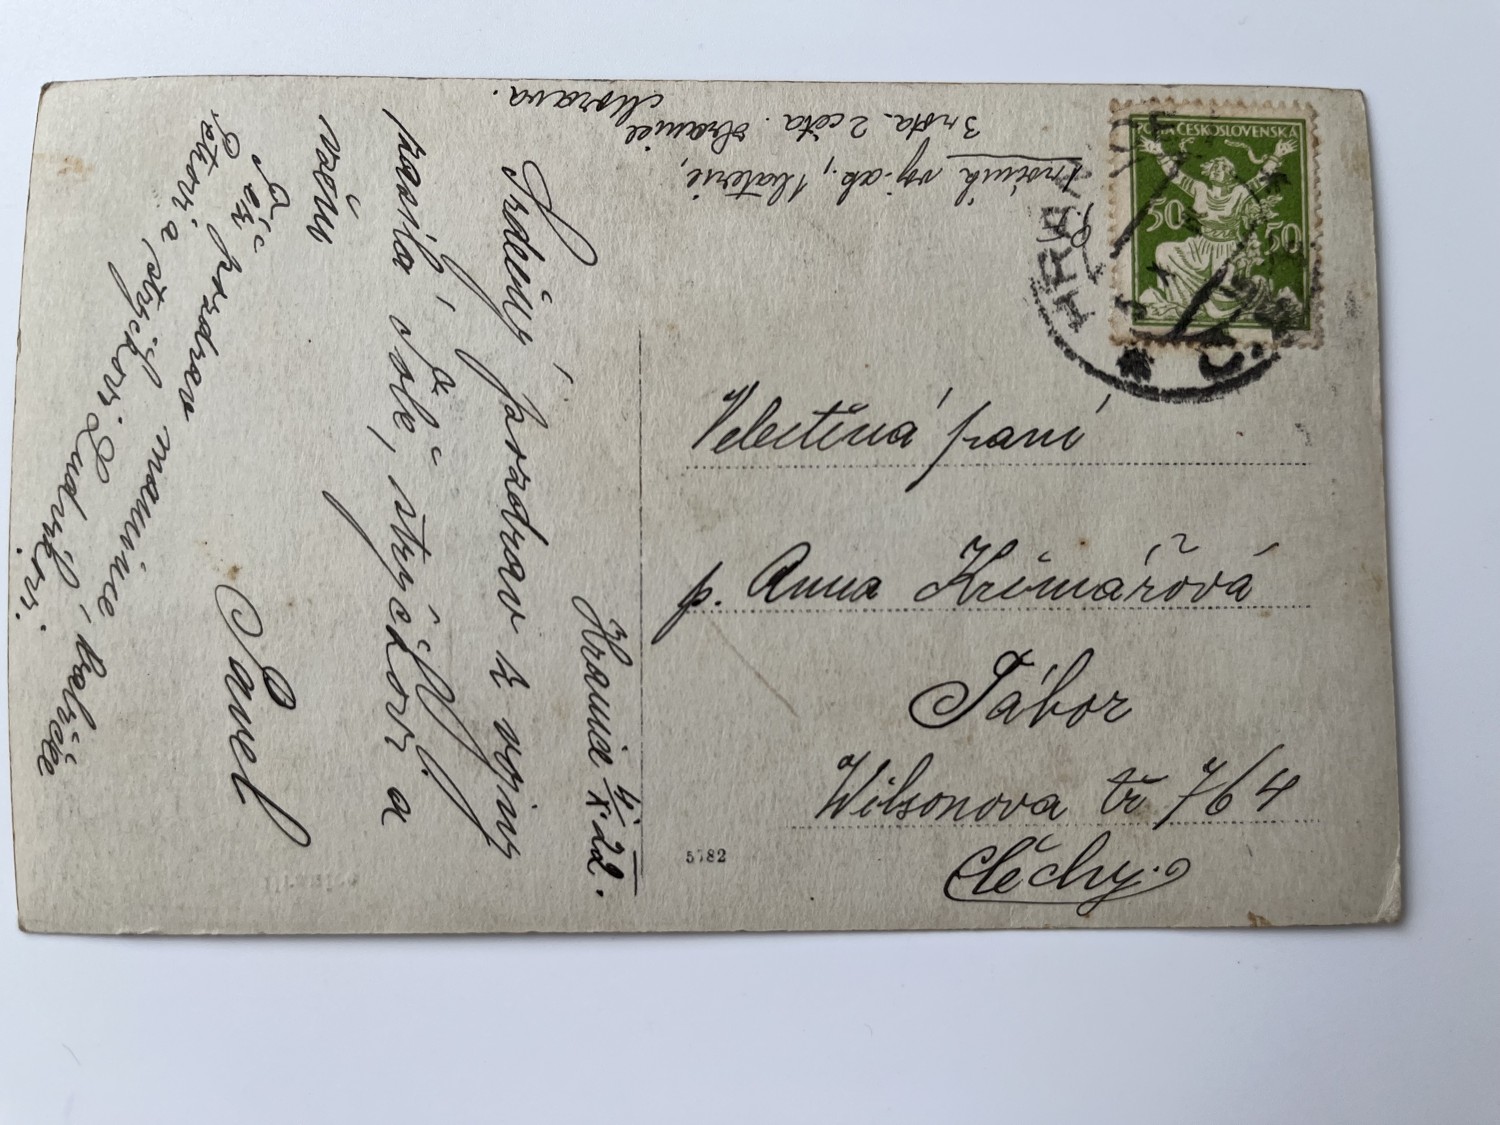 Hranice 4/X. 22.
Srdečný pozdrav z vojny
posílá Vše, strýčkovi a
vším
Pavel
pozdrav mamince, babičce
a strýčkovi Ludvíkovi.
voj. ak.,
3 rota. 2 četa. Hranice,
Morava.
POŠTA ČESKOSLOVENSKÁ
50 50
HRAN
Velectěná paní
p. Anna Krémářová
Tábor
Wilsonova tř 764
Čechy.
5782